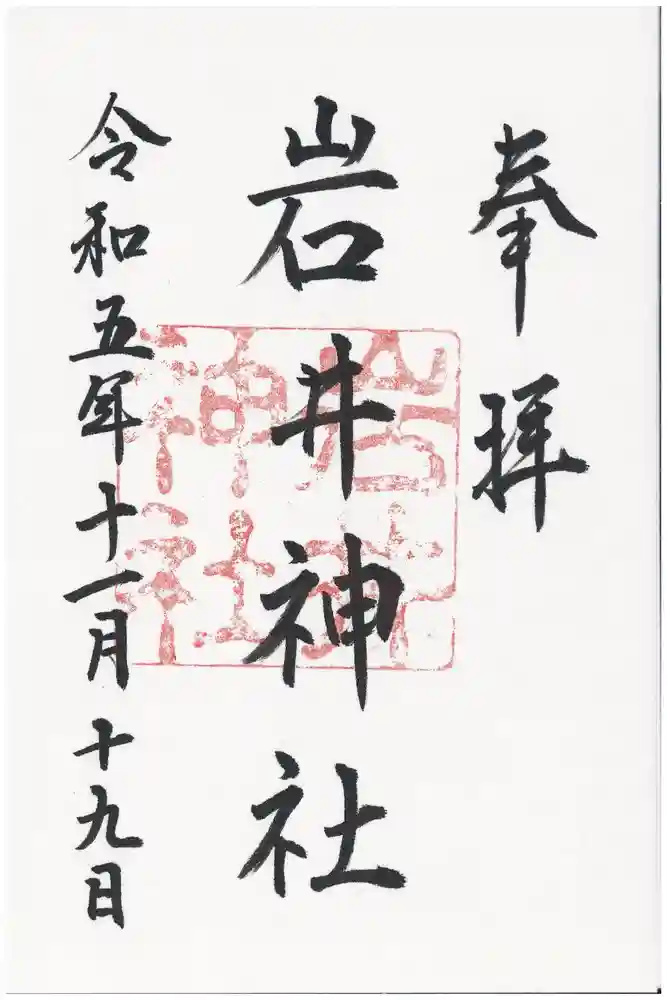 奉拝
岩井神社
令和五年十一月十九日
岩井
神社